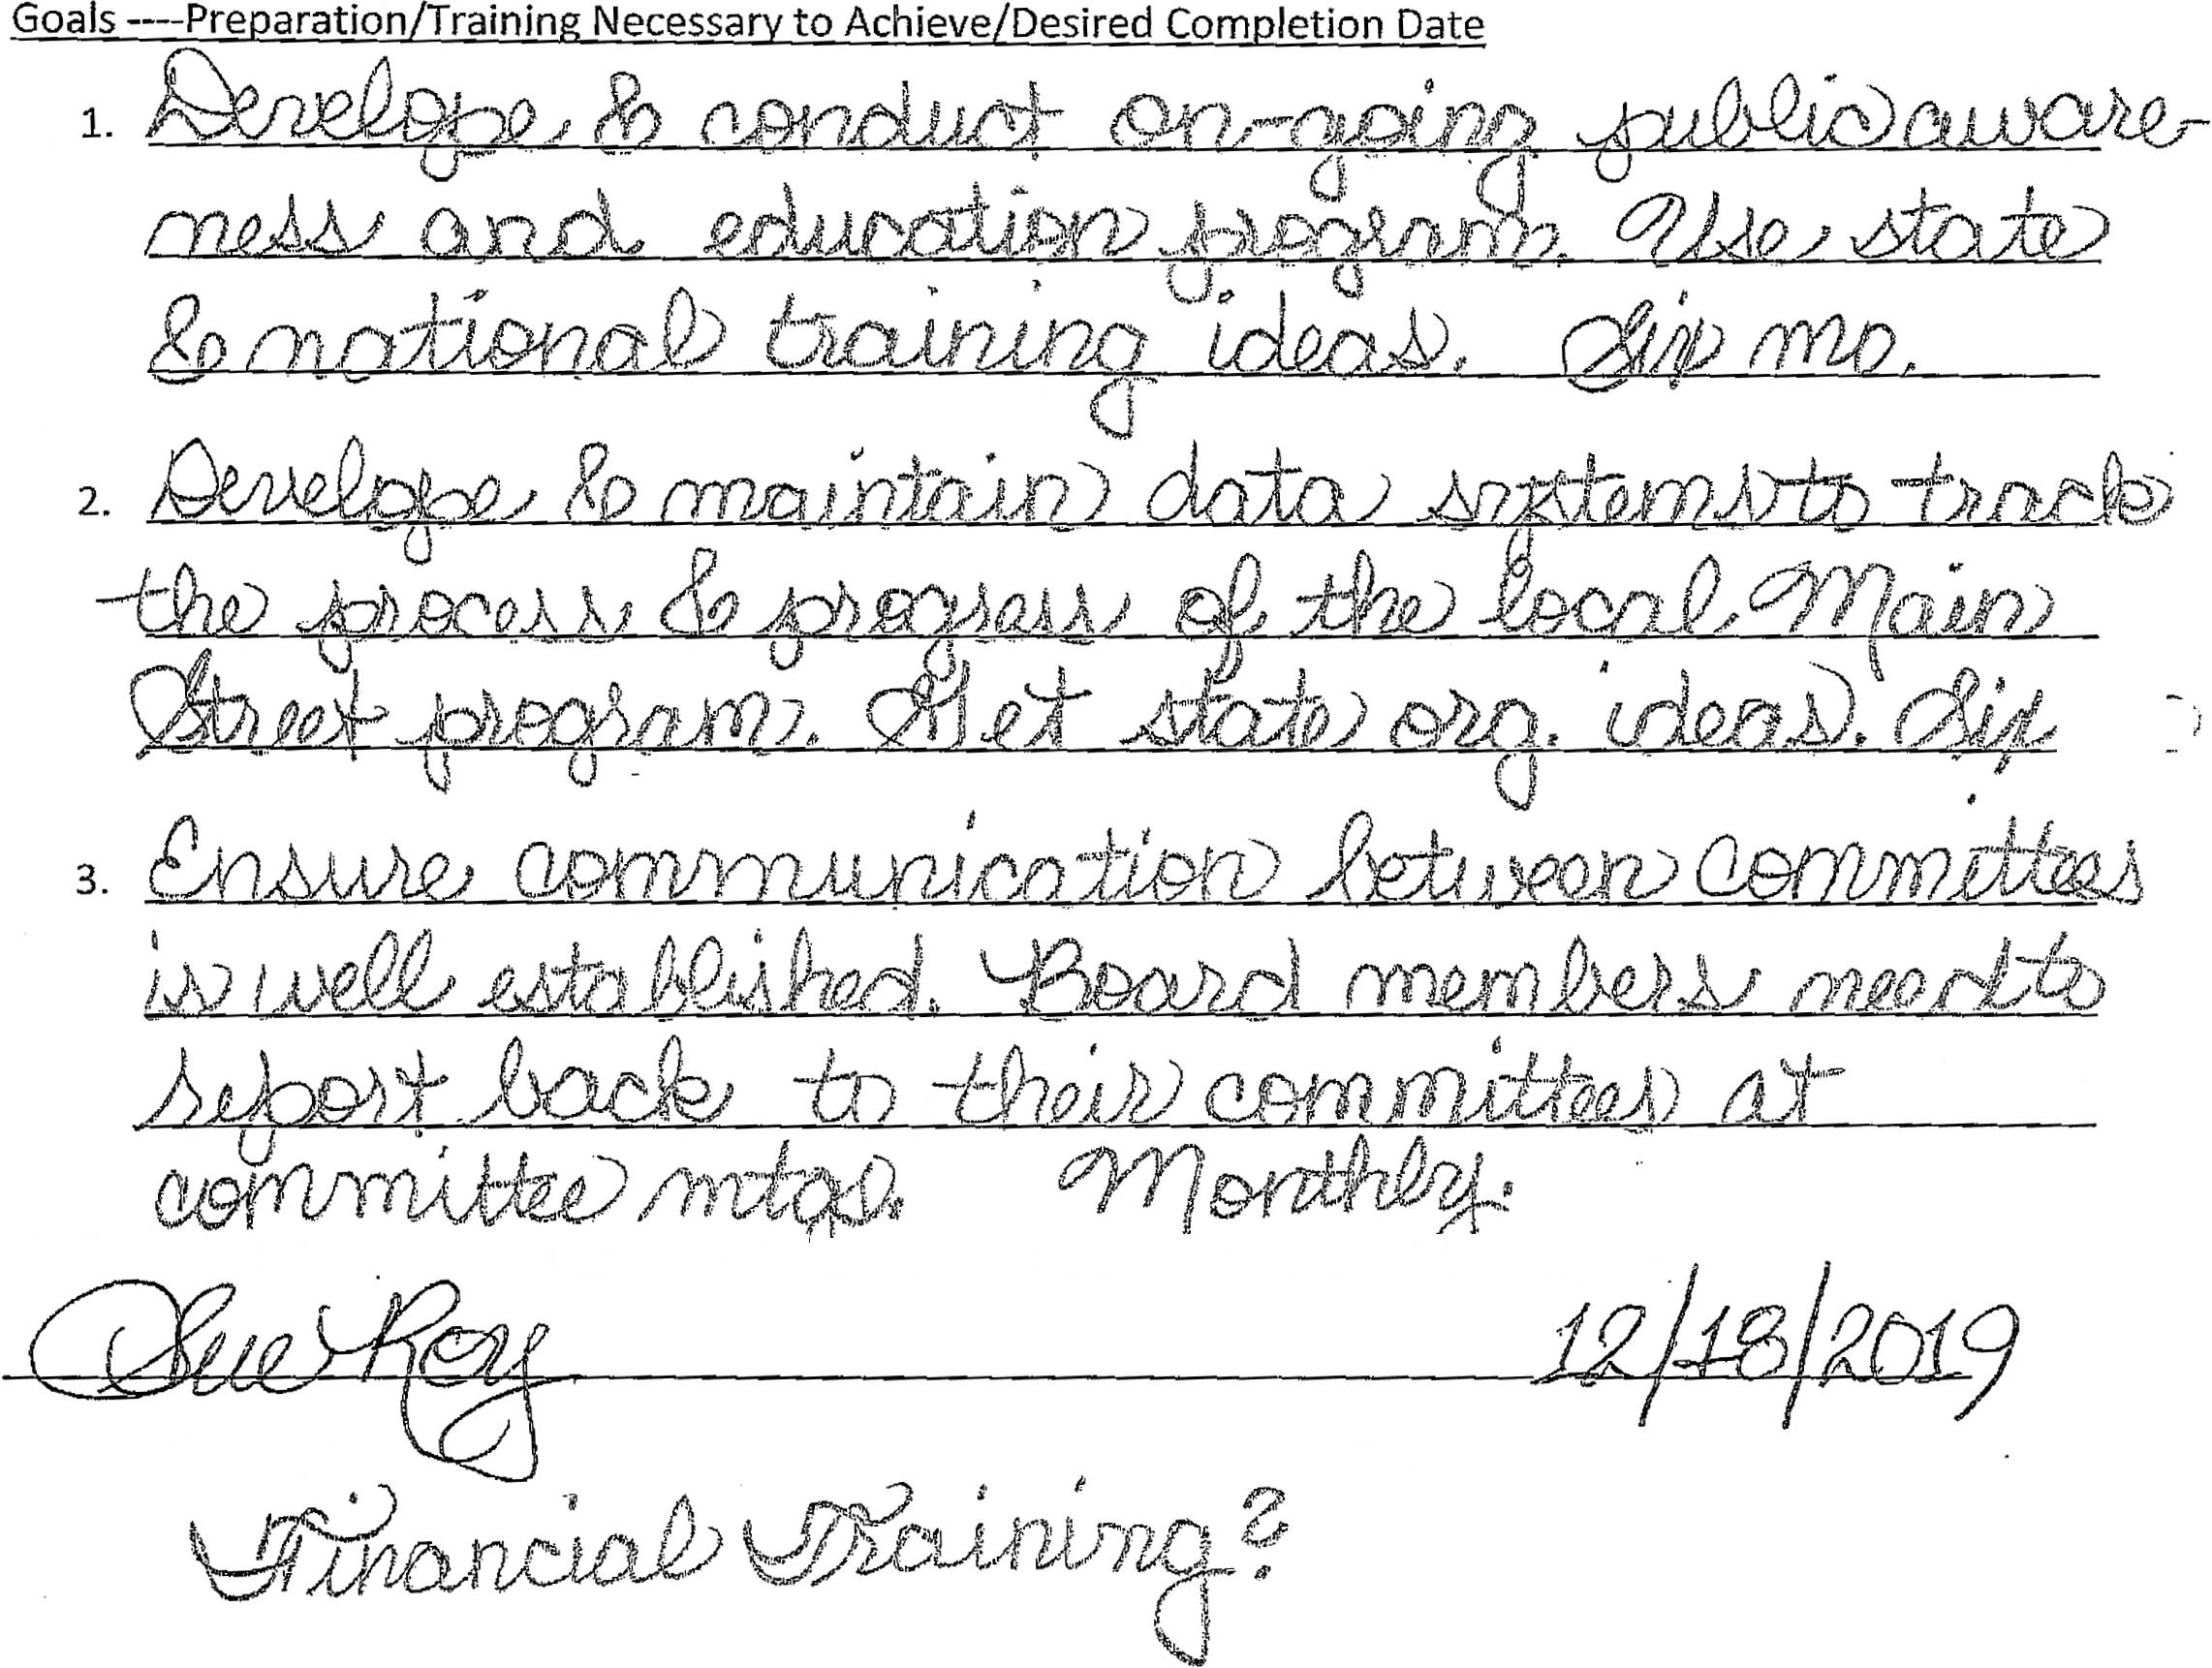 Goals ----Preparation/Training Necessary to Achieve/Desired Completion Date
1. Develope & conduct on-going public aware-
ness and education program. Use state
& national training ideas. Six mo.
2. Develope & maintain data systems to track
the process & progress of the local Main
Street program. Get state org. ideas. Six
3. Ensure communication between committees
is well established. Board members need to
report back to their committees at
committee mtgs. Monthly.
Sue Roy 12/18/2019
Financial Training?